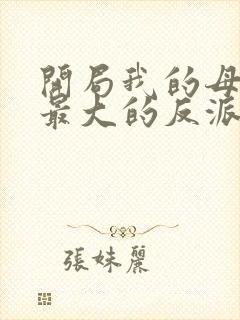 開局我的母
最大的反派
張妹麗